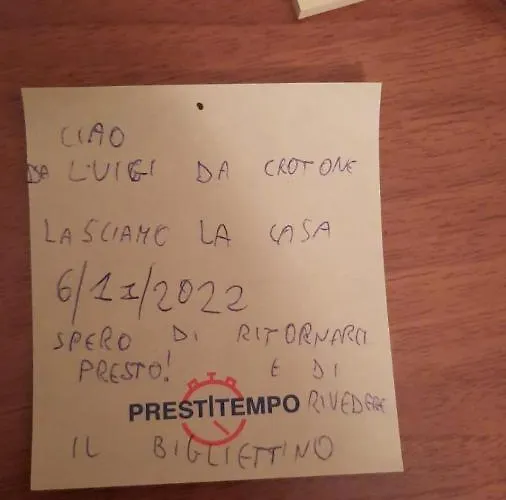 CIAO
DA LUIGI DA CROTONE
LASCIAMO LA CASA
6/11/2022
SPERO DI RITORNARCI
PRESTO! E DI
PRESTITEMPO RIVEDERE
IL BIGLIETTINO